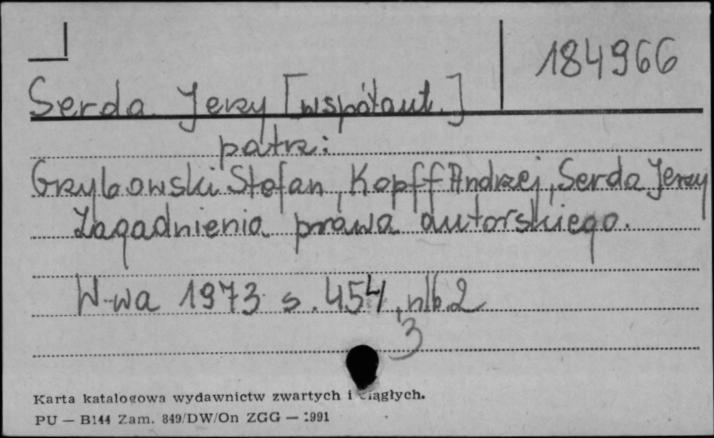 184966
Serda Jerzy [współaut.]
patrz:
Grzybowski Stefan, Kopff Andrzej, Serda Jerzy
Zagadnienia prawa autorskiego.
W-wa 1973 s. 454, nlb. 2
3
Karta katalogowa wydawnictw zwartych i ciągłych.
PU — B144 Zam. 849/DW/On ZGG — 1991